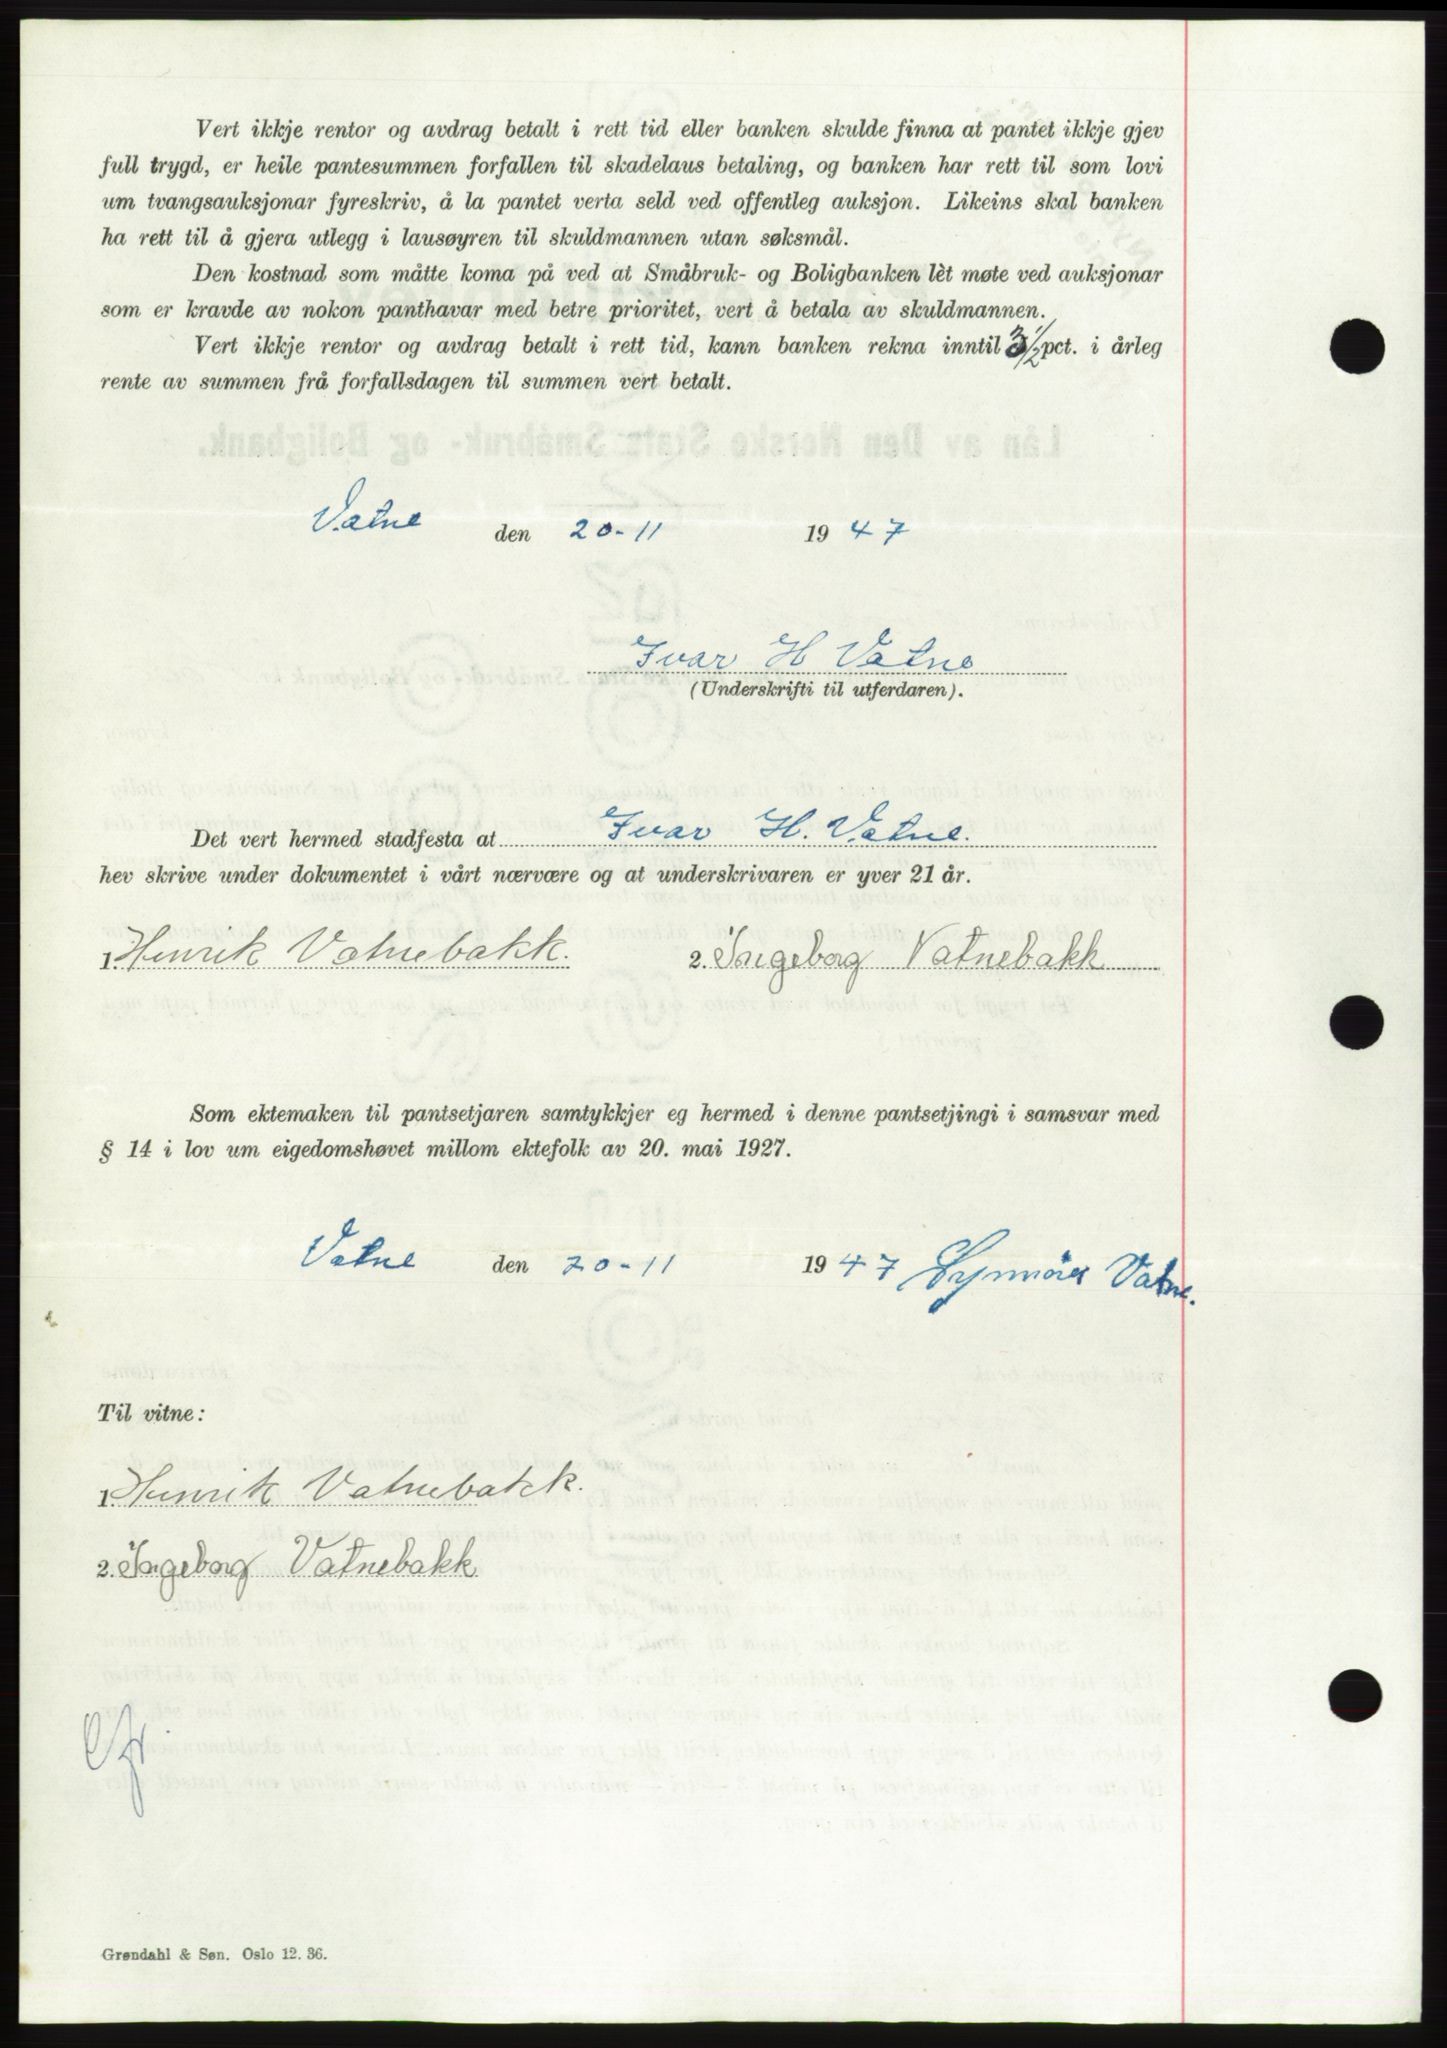 Vert ikkje rentor og avdrag betalt i rett tid eller banken skulde finna at pantet ikkje gjev
full trygd, er heile pantesummen forfallen til skadelaus betaling, og banken har rett til som lovi
um tvangsauksjonar fyreskriv, å la pantet verta seld ved offentleg auksjon. Likeins skal banken
ha rett til å gjera utlegg i lausøyren til skuldmannen utan søksmål.
Den kostnad som måtte koma på ved at Småbruk- og Boligbanken lèt møte ved auksjonar
som er kravde av nokon panthavar med betre prioritet, vert å betala av skuldmannen.
Vert ikkje rentor og avdrag betalt i rett tid, kann banken rekna inntil 3 1/2 pct. i årleg
rente av summen frå forfallsdagen til summen vert betalt.
Vatne den 20-11 19 47
Ivar H Vatne
(Underskrifti til utferdaren).
Det vert hermed stadfesta at Ivar H. Vatne.
hev skrive under dokumentet i vårt nærvære og at underskrivaren er yver 21 år.
1. Henrik Vatnebakk. 2. Ingeborg Vatnebakk
Som ektemaken til pantsetjaren samtykkjer eg hermed i denne pantsetjingi i samsvar med
§ 14 i lov um eigedomshøvet millom ektefolk av 20. mai 1927.
Vatne den 20-11 19 47 Synnöve Vatne.
Til vitne:
1. Henrik Vatnebakk.
2. Ingeborg Vatnebakk
Grøndahl & Søn. Oslo 12. 36.